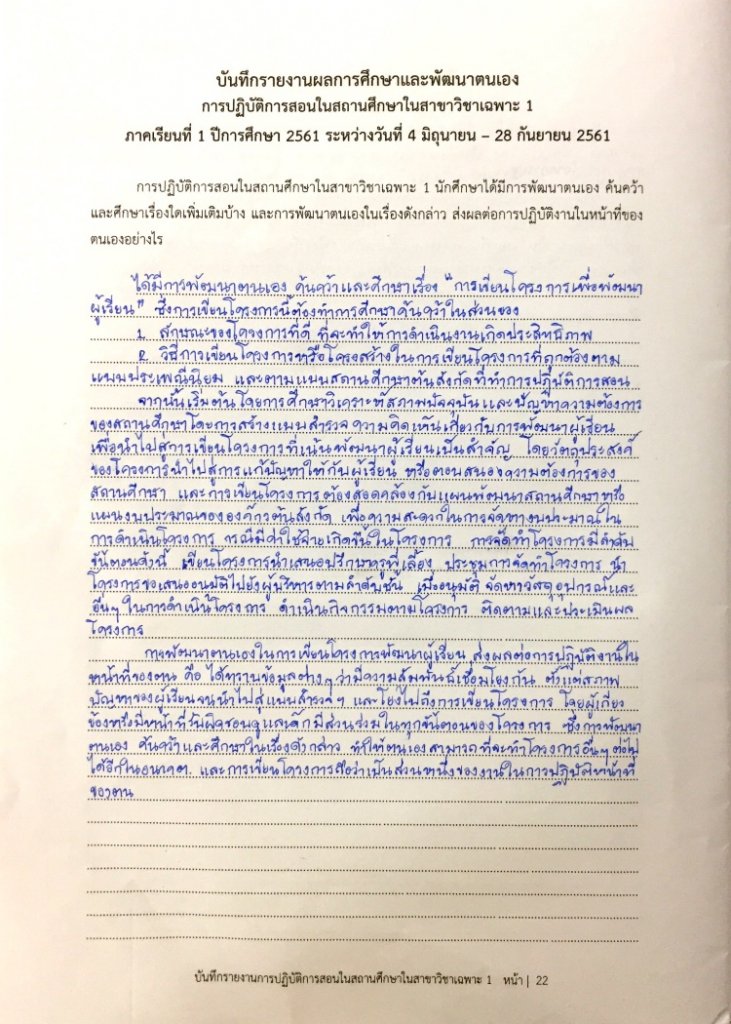 บันทึกรายงานผลการศึกษาและพัฒนาตนเอง
การปฏิบัติการสอนในสถานศึกษาในสาขาวิชาเฉพาะ 1
ภาคเรียนที่ 1 ปีการศึกษา 2561 ระหว่างวันที่ 4 มิถุนายน – 28 กันยายน 2561
การปฏิบัติการสอนในสถานศึกษาในสาขาวิชาเฉพาะ 1 นักศึกษาได้มีการพัฒนาตนเอง ค้นคว้า
และศึกษาเรื่องใดเพิ่มเติมบ้าง และการพัฒนาตนเองในเรื่องดังกล่าว ส่งผลต่อการปฏิบัติงานในหน้าที่ของ
ตนเองอย่างไร
ได้มีการพัฒนาตนเอง ค้นคว้าและศึกษาเรื่อง "การเขียนโครงการเพื่อพัฒนา
ผู้เรียน" ซึ่งการเขียนโครงการนี้ต้องทำการศึกษาค้นคว้าในส่วนของ
1. ลักษณะของโครงการที่ดี ที่จะทำให้การดำเนินงานเกิดประสิทธิภาพ
2. วิธีการเขียนโครงการหรือโครงสร้างในการเขียนโครงการที่ถูกต้องตาม
แบบประเพณีนิยม และตามแบบสถานศึกษาต้นสังกัดที่ทำการปฏิบัติการสอน
จากนั้นเริ่มต้นโดยการศึกษาวิเคราะห์สภาพปัจจุบันและปัญหาความต้องการ
ของสถานศึกษาโดยการสร้างแบบสำรวจความคิดเห็นเกี่ยวกับการพัฒนาผู้เรียน
เพื่อนำไปสู่การเขียนโครงการที่เน้นพัฒนาผู้เรียนเป็นสำคัญ โดยวัตถุประสงค์
ของโครงการนำไปสู่การแก้ปัญหาให้กับผู้เรียน หรือตอบสนองความต้องการของ
สถานศึกษา และการเขียนโครงการต้องสอดคล้องกับแผนพัฒนาสถานศึกษาหรือ
แผนงบประมาณขององค์กรต้นสังกัด เพื่อความสะดวกในการจัดหางบประมาณใน
การดำเนินโครงการ กรณีมีค่าใช้จ่ายเกิดขึ้นในโครงการ การจัดทำโครงการมีลำดับ
ขั้นตอนดังนี้ เขียนโครงการนำเสนอปรึกษาครูพี่เลี้ยง ประชุมการจัดทำโครงการ นำ
โครงการขอเสนออนุมัติไปยังผู้บริหารตามลำดับขั้น เมื่ออนุมัติ จัดหาวัสดุอุปกรณ์และ
อื่นๆ ในการดำเนินโครงการ ดำเนินกิจกรรมตามโครงการ ติดตามและประเมินผล
โครงการ
การพัฒนาตนเองในการเขียนโครงการพัฒนาผู้เรียน ส่งผลต่อการปฏิบัติงานใน
หน้าที่ของตน คือ ได้ทราบข้อมูลต่างๆ ว่ามีความสัมพันธ์เชื่อมโยงกัน ตั้งแต่สภาพ
ปัญหาของผู้เรียนจนนำไปสู่แบบสำรวจฯ และโยงไปถึงการเขียนโครงการ โดยผู้เกี่ยว
ข้องหรือมีหน้าที่รับผิดชอบดูแลนั้กมีส่วนร่วมในทุกขั้นตอนของโครงการ ซึ่งการพัฒนา
ตนเอง ค้นคว้าและศึกษาในเรื่องดังกล่าว ทำให้ตนเองสามารถที่จะทำโครงการอื่นๆ ต่อไป
ได้อีกในอนาคต. และการเขียนโครงการถือว่าเป็นส่วนหนึ่งของงานในการปฏิบัติหน้าที่
ของตน
บันทึกรายงานการปฏิบัติการสอนในสถานศึกษาในสาขาวิชาเฉพาะ 1 หน้า | 22